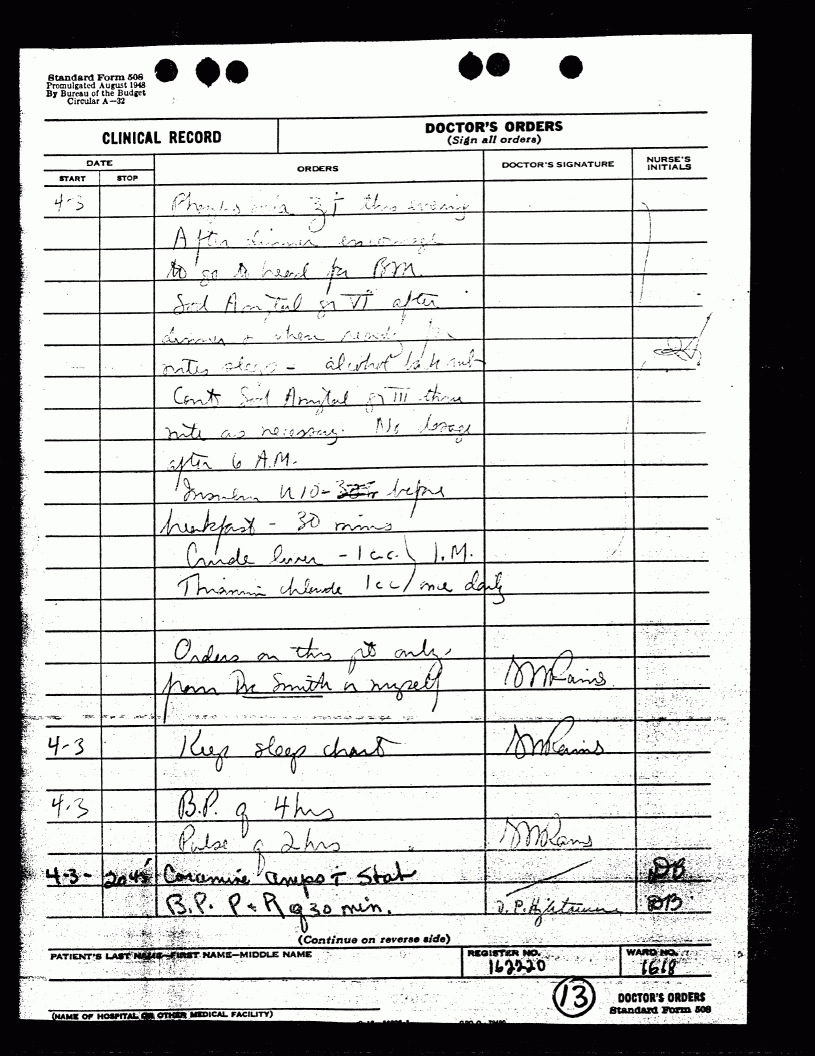 Standard Form 508
Promulgated August 1948
By Bureau of the Budget
Circular A—32
CLINICAL RECORD
DOCTOR'S ORDERS
(Sign all orders)
DATE
START STOP
ORDERS
DOCTOR'S SIGNATURE
NURSE'S INITIALS
4-3 this evening
After dinner encourage
to go to head for BM.
Sod Amytal gr VI after
dinner & when ready for
nites sleep - alcohol rub
Cont Sod Amytal gr III thru
nite as necessary. No dosage
after 6 A.M.
Insulin U10- before
breakfast - 30 mins
Crude liver - 1 cc. } I.M.
Thiamin chloride 1cc / once daily
Orders on this pt only
from Dr. Smith or myself
4-3 Keep sleep chart
4-3 B.P. q 4 hrs
Pulse q 2 hrs
4-3- 2045 Coramine amps Ť Stat DB
B.P. P & R q 30 min. DB
(Continue on reverse side)
PATIENT'S LAST NAME—FIRST NAME—MIDDLE NAME
REGISTER NO.
162220
WARD NO.
1618
13
DOCTOR'S ORDERS
Standard Form 508
(NAME OF HOSPITAL OR OTHER MEDICAL FACILITY)